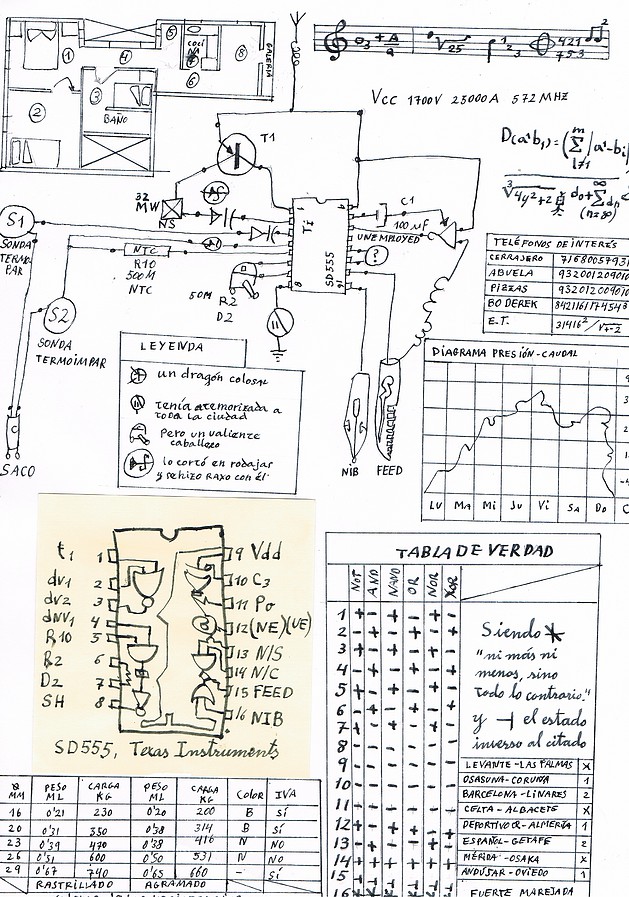 1
2
3
4
5
6
8
COCINA
BAÑO
GALERIA
VCC 1700V 25000A 572 MHZ
T1
32 MW
NS
Ti
SD555
C1
100 µF
UNEMPLOYED
?
S1
SONDA TERMOPAR
NTC
R10
500M
NTC
50M
R2
D2
S2
SONDA TERMOIMPAR
C
SACO
NIB
FEED
LEYENDA
un dragón colosal
tenía atemorizada a
toda la ciudad
Pero un valiente
caballero
lo cortó en rodajas
y se hizo RAXO con él
TELÉFONOS DE INTERÉS
CERRAJERO
ABUELA
PIZZAS
BO DEREK
E.T.
DIAGRAMA PRESIÓN-CAUDAL
LU MA MI JU VI SA DO
t1 1
dV1 2
dV2 3
dNV1 4
R10 5
R2 6
D2 7
SH 8
9 Vdd
10 C3
11 Po
12 (NE)(UE)
13 N/S
14 N/C
15 FEED
16 NIB
SD555, Texas Instruments
TABLA DE VERDAD
NOT AND NAND OR NOR XOR
1
2
3
4
5
6
7
8
9
10
11
12
13
14
15
16
Siendo
"ni más ni
menos, sino
todo lo contrario."
y ⊣ el estado
inverso al citado
LEVANTE-LAS PALMAS X
OSASUNA-CORUÑA 1
BARCELONA-LINARES 2
CELTA-ALBACETE X
DEPORTIVO-ALMERÍA 1
ESPAÑOL-GETAFE 2
MÉRIDA-OSAKA X
ANDÚJAR-OVIEDO 1
FUERTE MAREJADA
Ø MM PESO ML CARGA KG PESO ML CARGA KG COLOR IVA
16 0'21 230 0'20 200 B SÍ
20 0'31 350 0'38 314 B SÍ
23 0'39 470 0'38 416 N NO
26 0'51 600 0'50 531 N NO
29 0'67 740 0'65 660 - SÍ
RASTRILLADO AGRAMADO